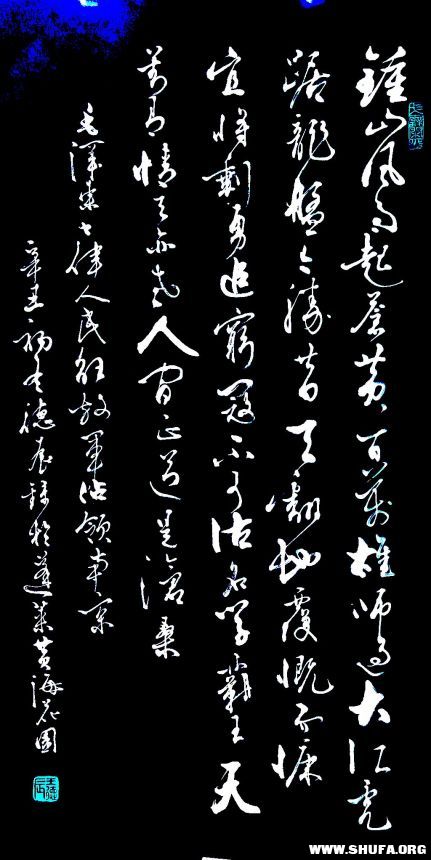 鍾山風雨起蒼黄百萬雄師過大江虎
踞龍盤今勝昔天翻地覆慨而慷
宜將剩勇追窮寇不可沽名學霸王天
若有情天亦老人間正道是滄桑
毛澤東七律人民解放軍佔領南京
辛丑初冬德辰錄於蓬萊黄海花園
WWW.SHUFA.ORG